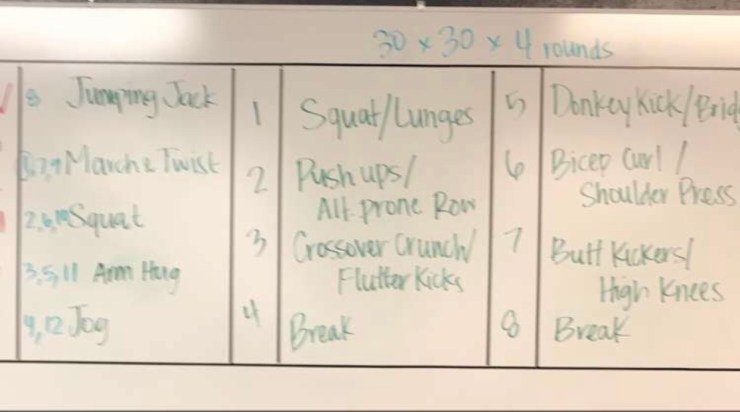 30 x 30 x 4 rounds
8 Jumping Jack
1,7,9 March & Twist
2,6,10 Squat
3,5,11 Arm Hug
4,12 Jog
1 Squat/Lunges
2 Push ups/
Alt. prone Row
3 Crossover Crunch/
Flutter Kicks
4 Break
5 Donkey Kick/Brid
6 Bicep Curl /
Shoulder Press
7 Butt Kickers/
High Knees
8 Break